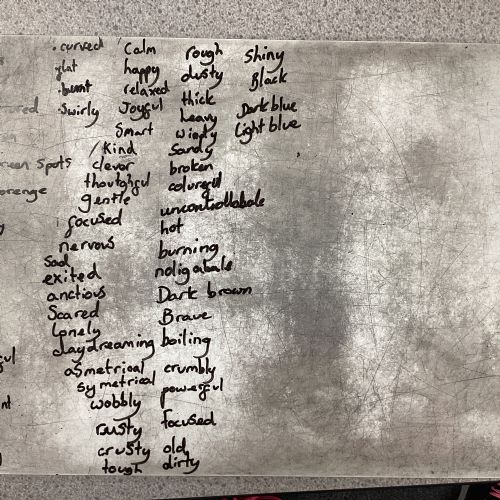 curved
flat
burnt
swirly
calm
happy
relaxed
Joyful
Smart
Kind
clevor
thoutghful
gentle
focused
nervous
Sad
exited
anctious
Scared
lonely
daydreaming
asmetrical
symetrical
wobbly
rusty
crusty
tough
rough
dusty
thick
heavy
windy
Sandy
broken
colureful
uncontrollabale
hot
burning
Dark brown
Brave
boiling
crumbly
powerful
focused
old
dirty
Shiny
Black
Dark blue
Light blue
een spots
orenge